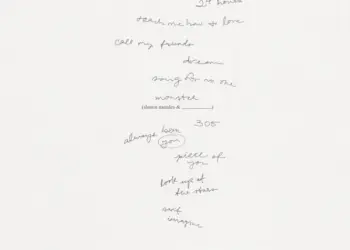 teach me how to love
call my friends
dream
song for no one
monster
(dawn mendes & ________)
305
always been
you
piece of
you
look up at
the stars
can't
imagine